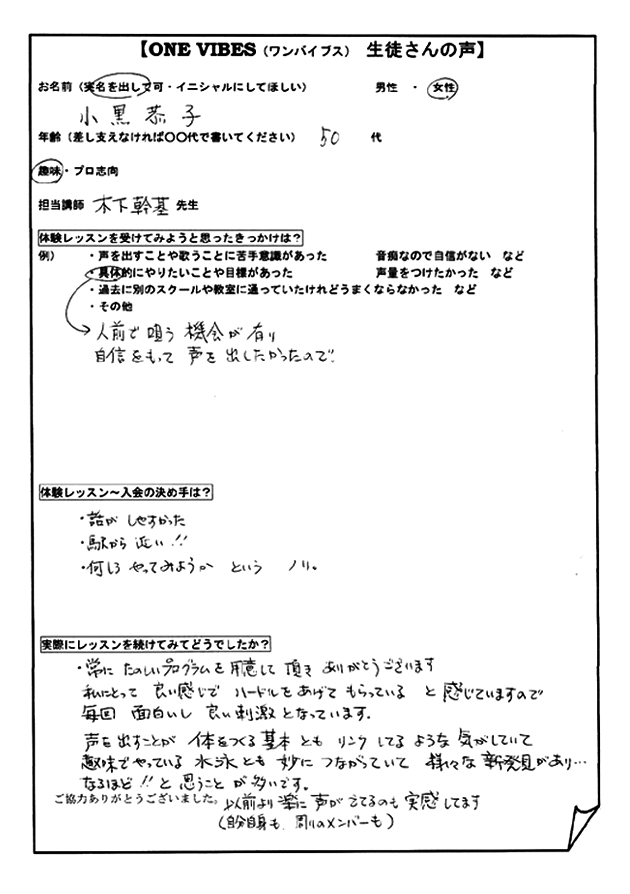 【ONE VIBES（ワンバイブス） 生徒さんの声】
お名前（実名を出して可・イニシャルにしてほしい） 男性 ・ 女性
小黒恭子
年齢（差し支えなければ〇〇代で書いてください） 50 代
趣味・プロ志向
担当講師 木下幹基 先生
体験レッスンを受けてみようと思ったきっかけは？
例） ・声を出すことや歌うことに苦手意識があった 音痴なので自信がない など
・具体的にやりたいことや目標があった 声量をつけたかった など
・過去に別のスクールや教室に通っていたけれどうまくならなかった など
・その他
人前で唱う 機会が有り
自信をもって 声を出したかったので!
体験レッスン～入会の決め手は？
・話が しやすかった
・駅から 近い!!
・何しろ やってみようか という ノリ。
実際にレッスンを続けてみてどうでしたか？
・常に たのしいプログラムを用意して 頂き ありがとうございます
私にとって 良い感じで ハードルをあげて もらっている と 感じていますので
毎回 面白いし 良い刺激となっています.
声を出すことが 体をつくる基本とも リンク してる ような 気がしていて
趣味でやっている 水泳とも 妙に つながっていて 様々な 新発見があり…
なるほど!! と 思うことが 多いです。
ご協力ありがとうございました。 以前より 楽に 声が でてるのも 実感してます
(自分自身も、周りのメンバーも)